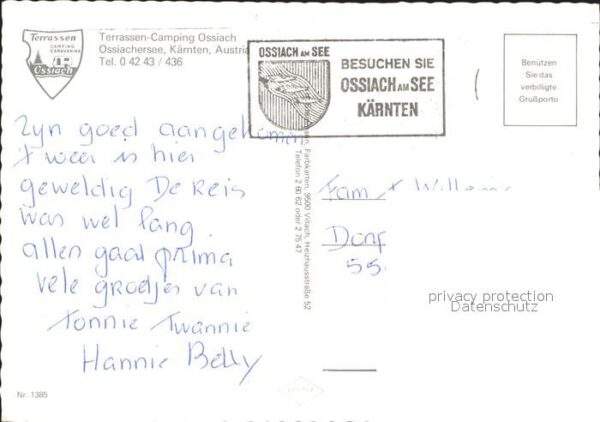 Terrassen
CAMPING
CARAVANING
Ossiach
Terrassen-Camping Ossiach
Ossiachersee, Kärnten, Austria
Tel. 0 42 43 / 436
OSSIACH AM SEE
BESUCHEN SIE
OSSIACH AM SEE
KÄRNTEN
Benützen
Sie das
verbilligte
Grußporto
Zyn goed aangekomen
t weer is hier
geweldig De Reis
was wel lang
allen gaat prima
vele groetjes van
Tonnie Twannie
Hannie Belly
Farbkarten, 9500 Villach, Heizhausstraße 52
Telefon 2 80 62 oder 2 75 47
Fam
Dorf
55
privacy protection
Datenschutz
Nr. 1385